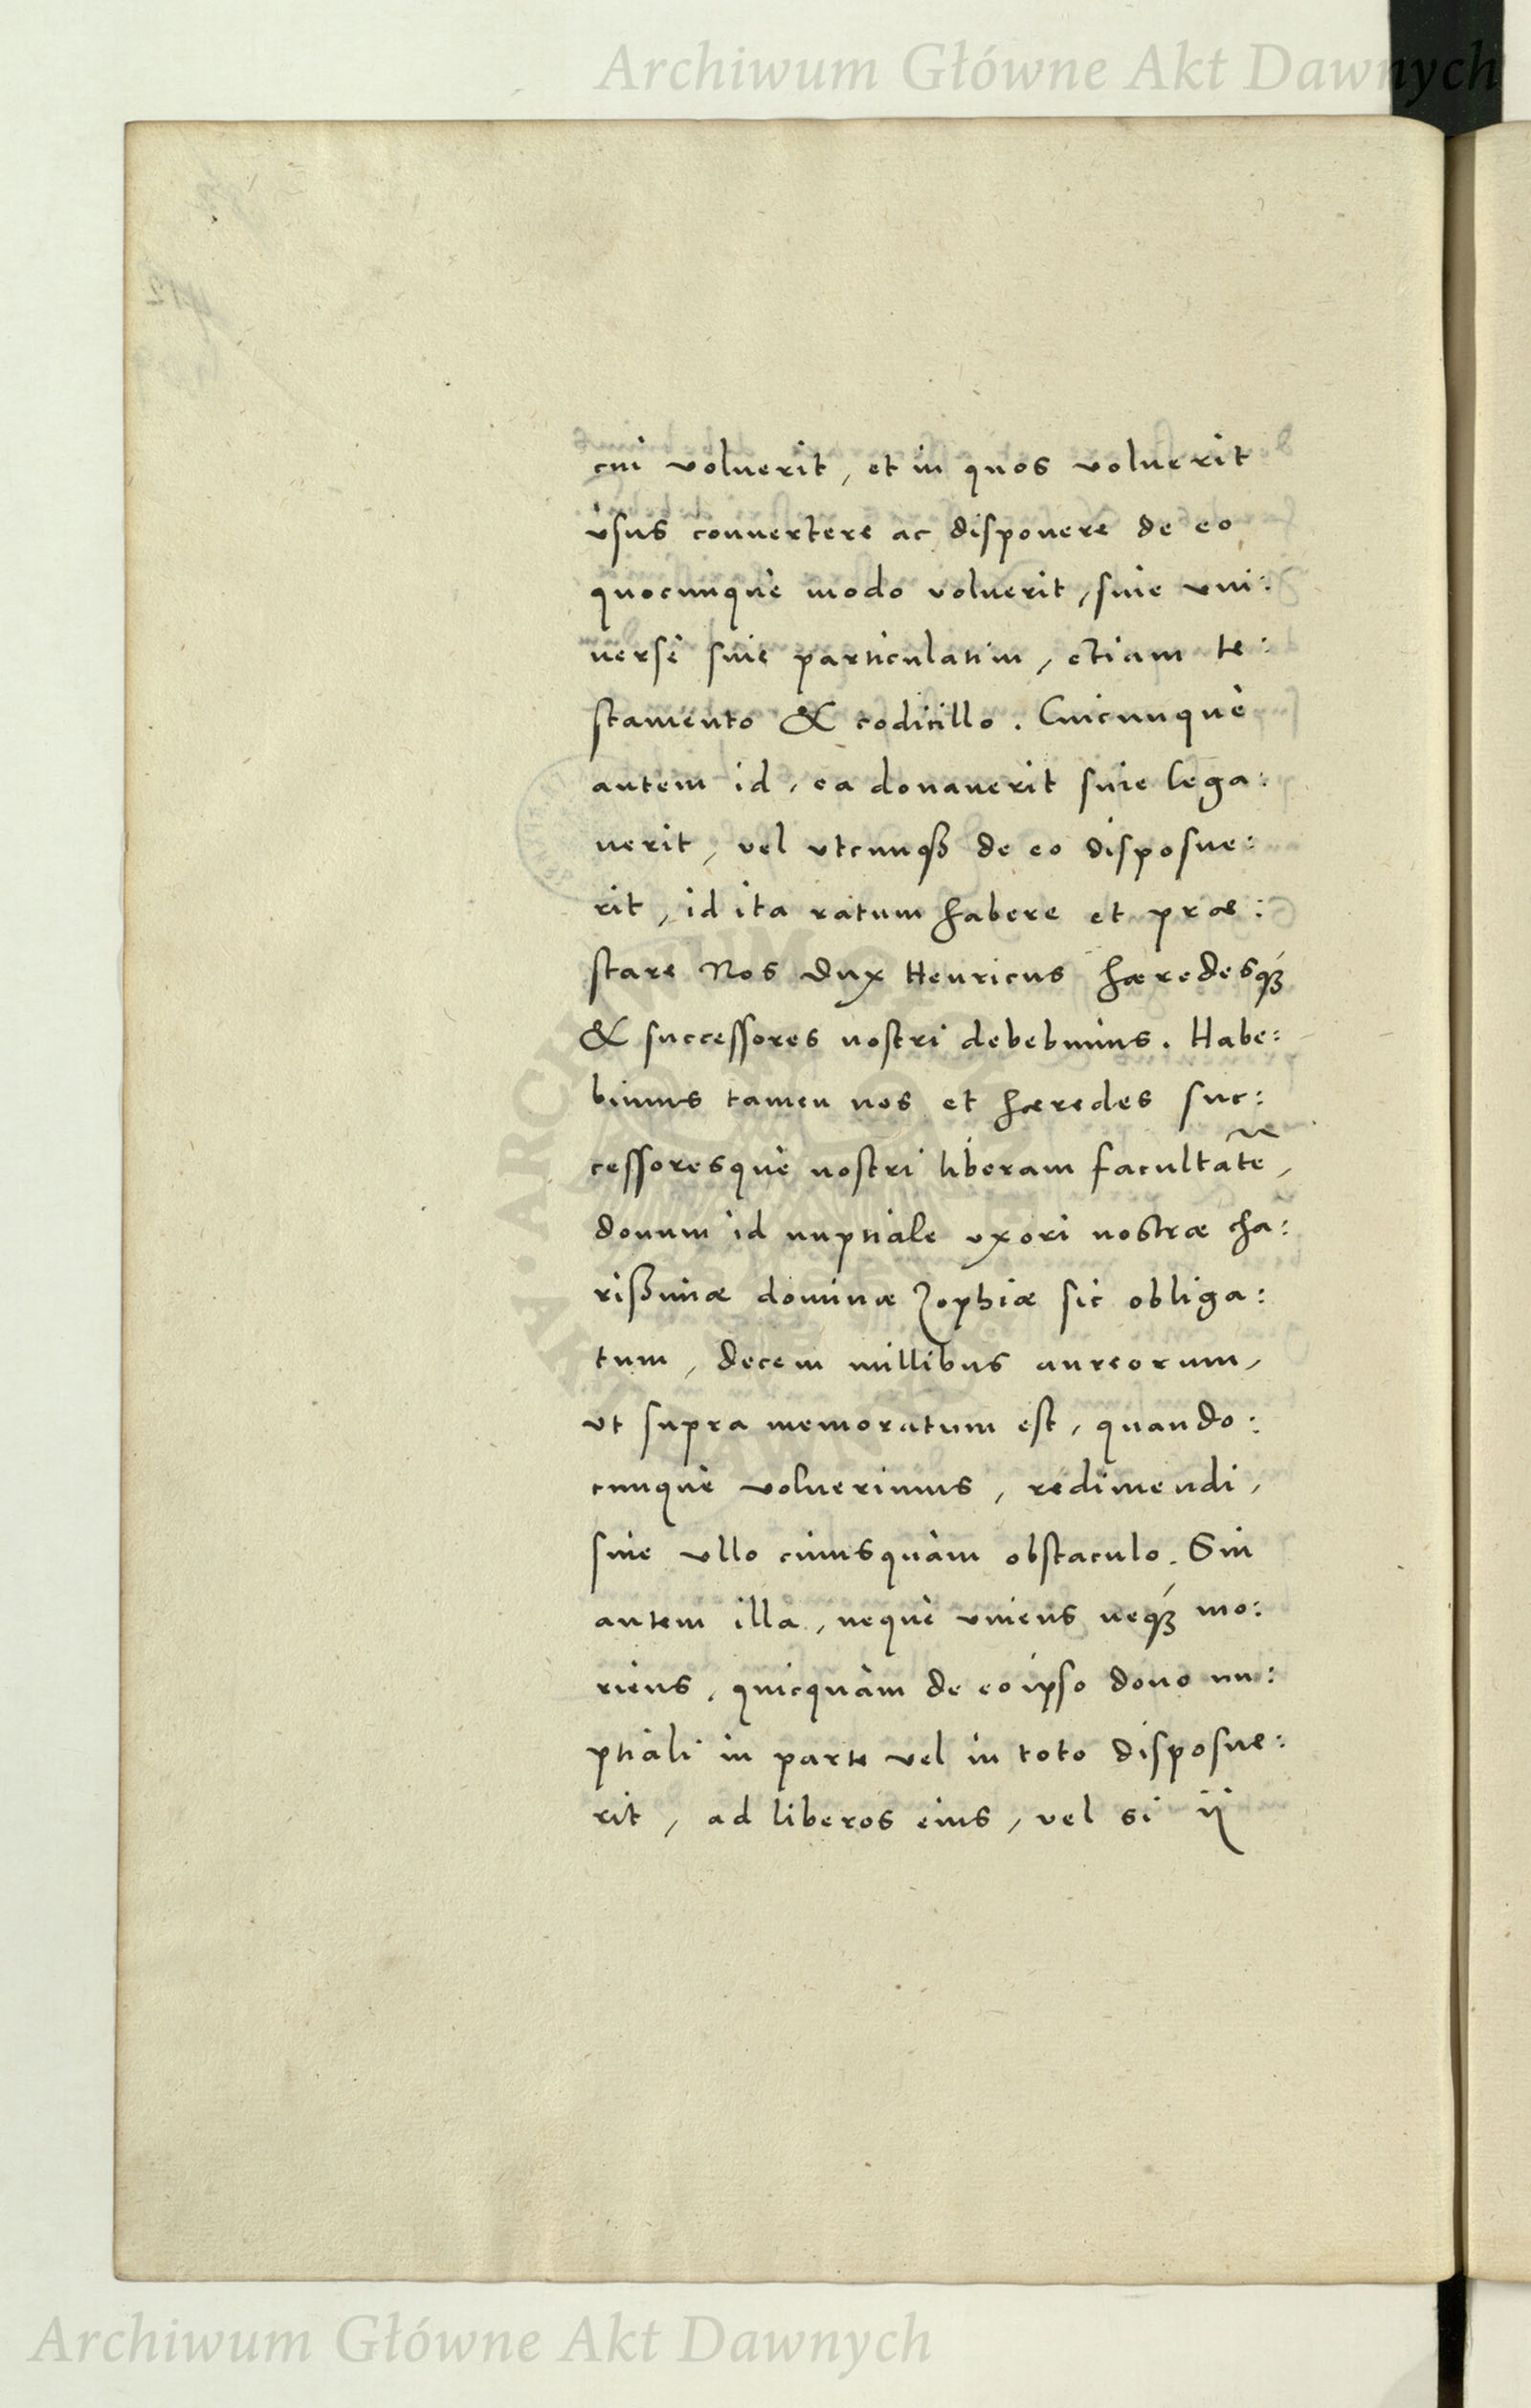 Archiwum Główne Akt Dawnych
cui voluerit, et in quos voluerit
vsus conuertere ac disponere de eo
quocunquè modo voluerit, siue vni:
uersè siue particulatim, etiam te:
stamento & codicillo. Cuicunquè
autem id, ea donauerit siue lega:
uerit, vel vtcunqꝫ de eo disposue:
rit, id ita ratum habere et præ:
stare Nos Dux Henricus hæredesqꝫ
& successores nostri debebimus. Habe:
bimus tamen nos et hæredes suc:
cessoresquè nostri liberam facultatē,
donum id nuptiale vxori nostræ cha:
rißimæ dominæ Zophiæ sic obliga:
tum, decem millibus aureorum,
vt supra memoratum est, quando:
cunquè voluerimus, redimendi,
sine vllo cuiusquàm obstaculo. Sin
autem illa, nequè viuens neqꝫ mo:
riens, quicquàm de eo ipso dono nu:
ptiali in parte vel in toto disposue:
rit, ad liberos eius, vel si ij
Archiwum Główne Akt Dawnych